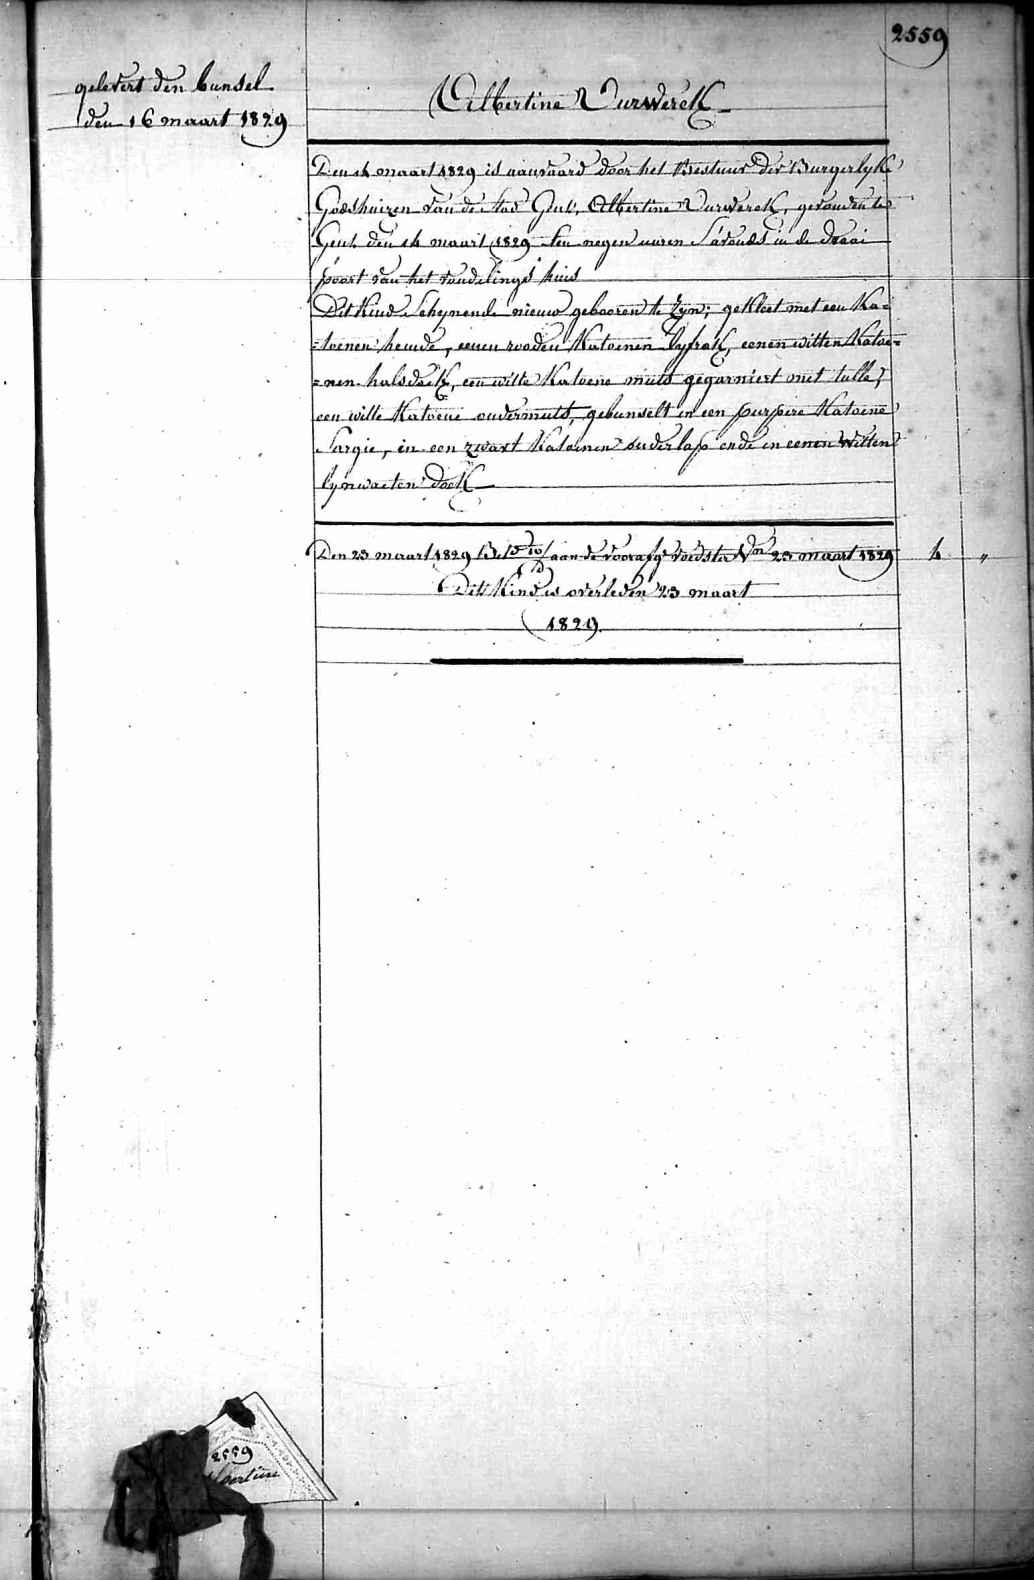 2559
gelevert den bunsel
den 16 maart 1829
Albertine Vurwerck
Den 14 maart 1829 is aanvaard door het Bestuur der Burgerlyke
Godshuizen van de stad Gent, Albertine Vurwerck, gevonden te
Gent den 14 maart 1829 ten negen uuren s'avonds in de draai
poort van het vondelings huis
Dit kind schynende nieuw gebooren te zyn; gekleet met een Ka=
=toenen hemde, eenen rooden Katoenen lyfrok, eenen witten Katoe=
=nen halsdoek, een witte Katoene muts gegarniert met tulle,
een witte Katoene ondermuts, gebunselt in een purpere Katoene
Sargie, in een zwart Katoenen onderlap ende in eenen witten
lynwaeten doek
Den 23 maart 1829 aan de voorafge voedster Von 23 maart 1829 4 "
Dit Kind is overleden 23 maart
1829.
2559
Albertine